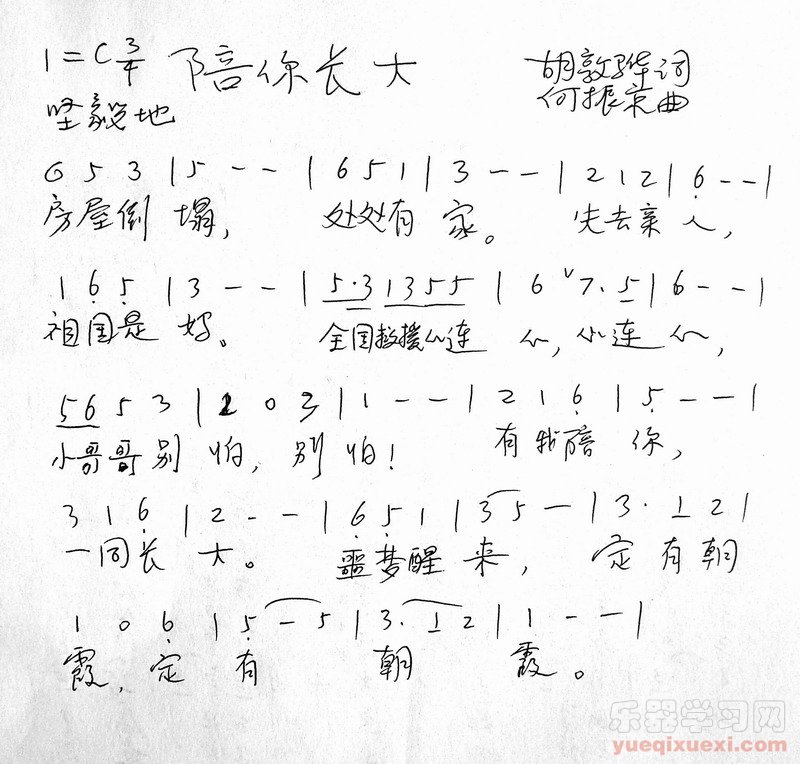 1=C 3/4 陪你长大 胡敦骅词
坚毅地 何振京曲
6 5 3 | 5 - - | 6 5 1 | 3 - - | 2 1 2 | 6̣ - - |
房屋倒 塌, 处处有 家。 失去亲 人,
1 6̣ 5̣ | 3 - - | 5·3 1355 | 6 ˅7·5 | 6 - - |
祖国是 妈。 全国救援心连 心, 心连 心,
56 5 3 | 2 0 3 | 1 - - | 2 1 6̣ | 5̣ - - |
小哥哥别 怕, 别 怕! 有我陪 你,
3 1 6̣ | 2 - - | 6̣ 5̣ 1 | 3 5 - | 3· 1 2 |
一同长 大。 噩梦醒 来, 定 有朝
1 0 6̣ | 5̣ - 5 | 3· 1 2 | 1 - - |
霞, 定 有 朝 霞。
乐器学习网
yueqixuexi.com